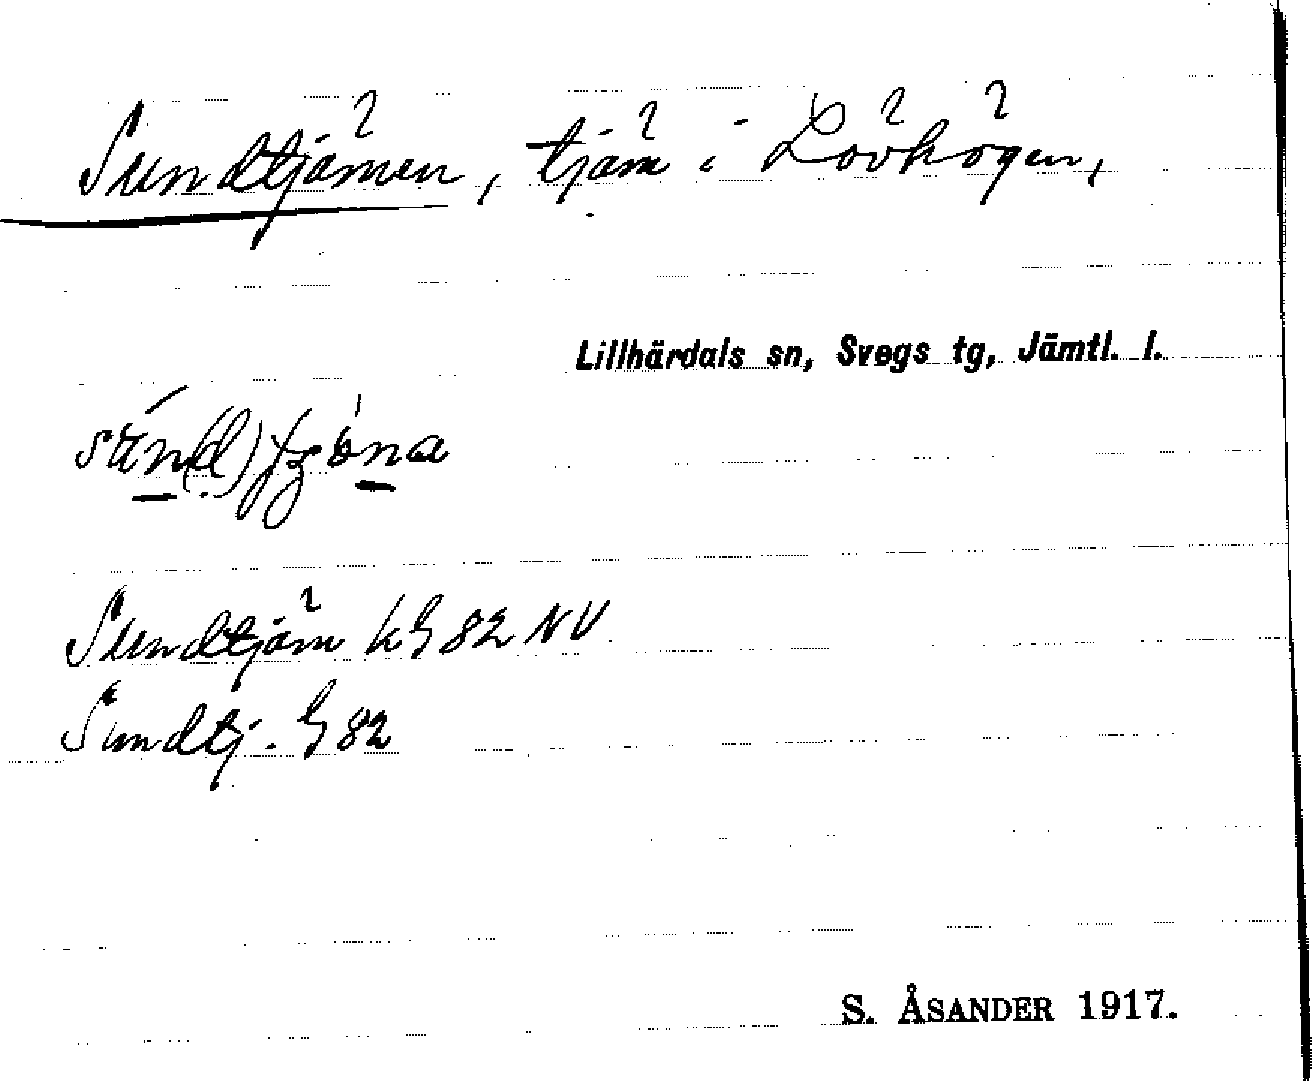 Sundtjärnen, tjärn i Lövhögen,
Lillhärdals sn, Svegs tg, Jämtl. l.
Sundtjärn k G 82 NV
Sundtj. G 82
S. ÅSANDER 1917.